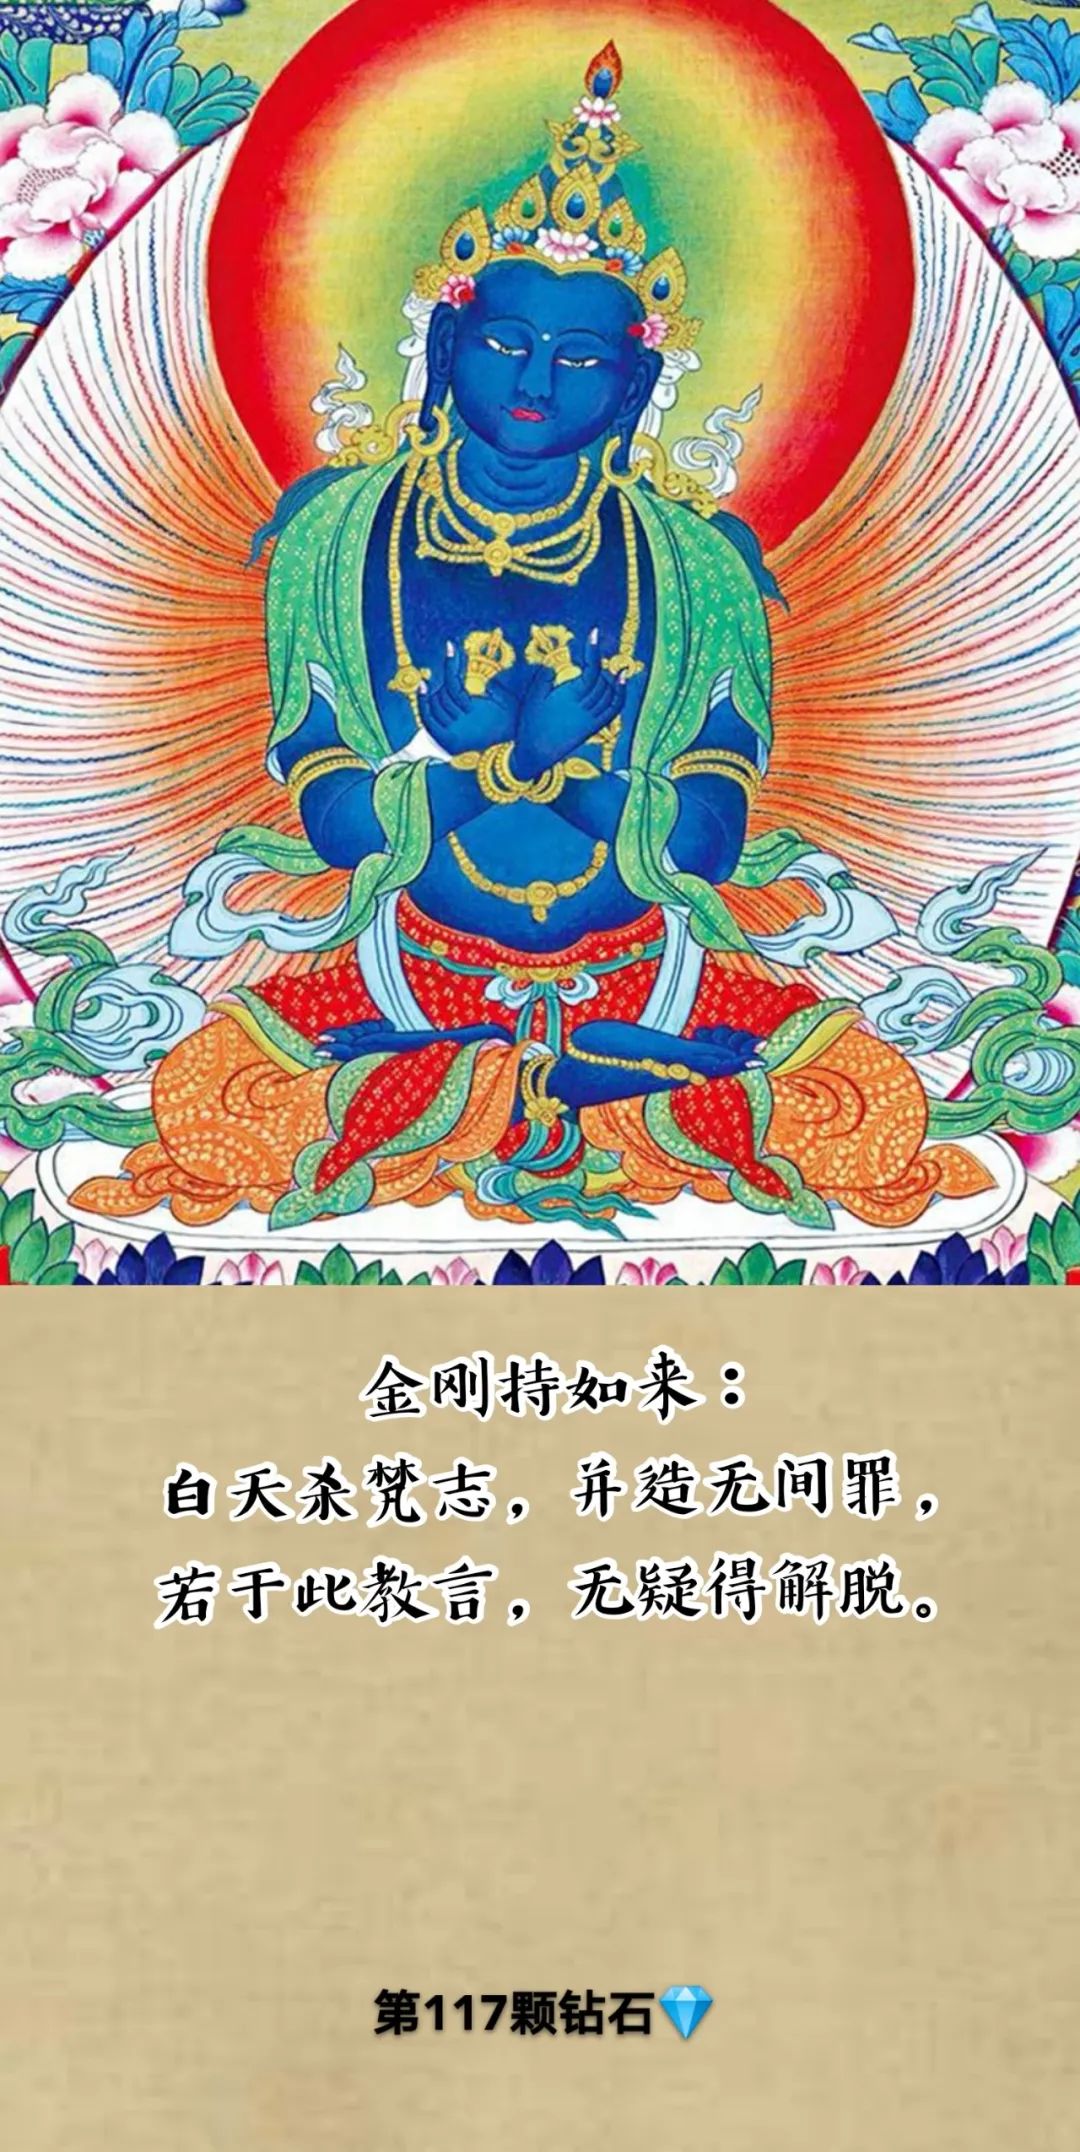 金刚持如来：
白天杀梵志，并造无间罪，
若于此教言，无疑得解脱。
第117颗钻石💎